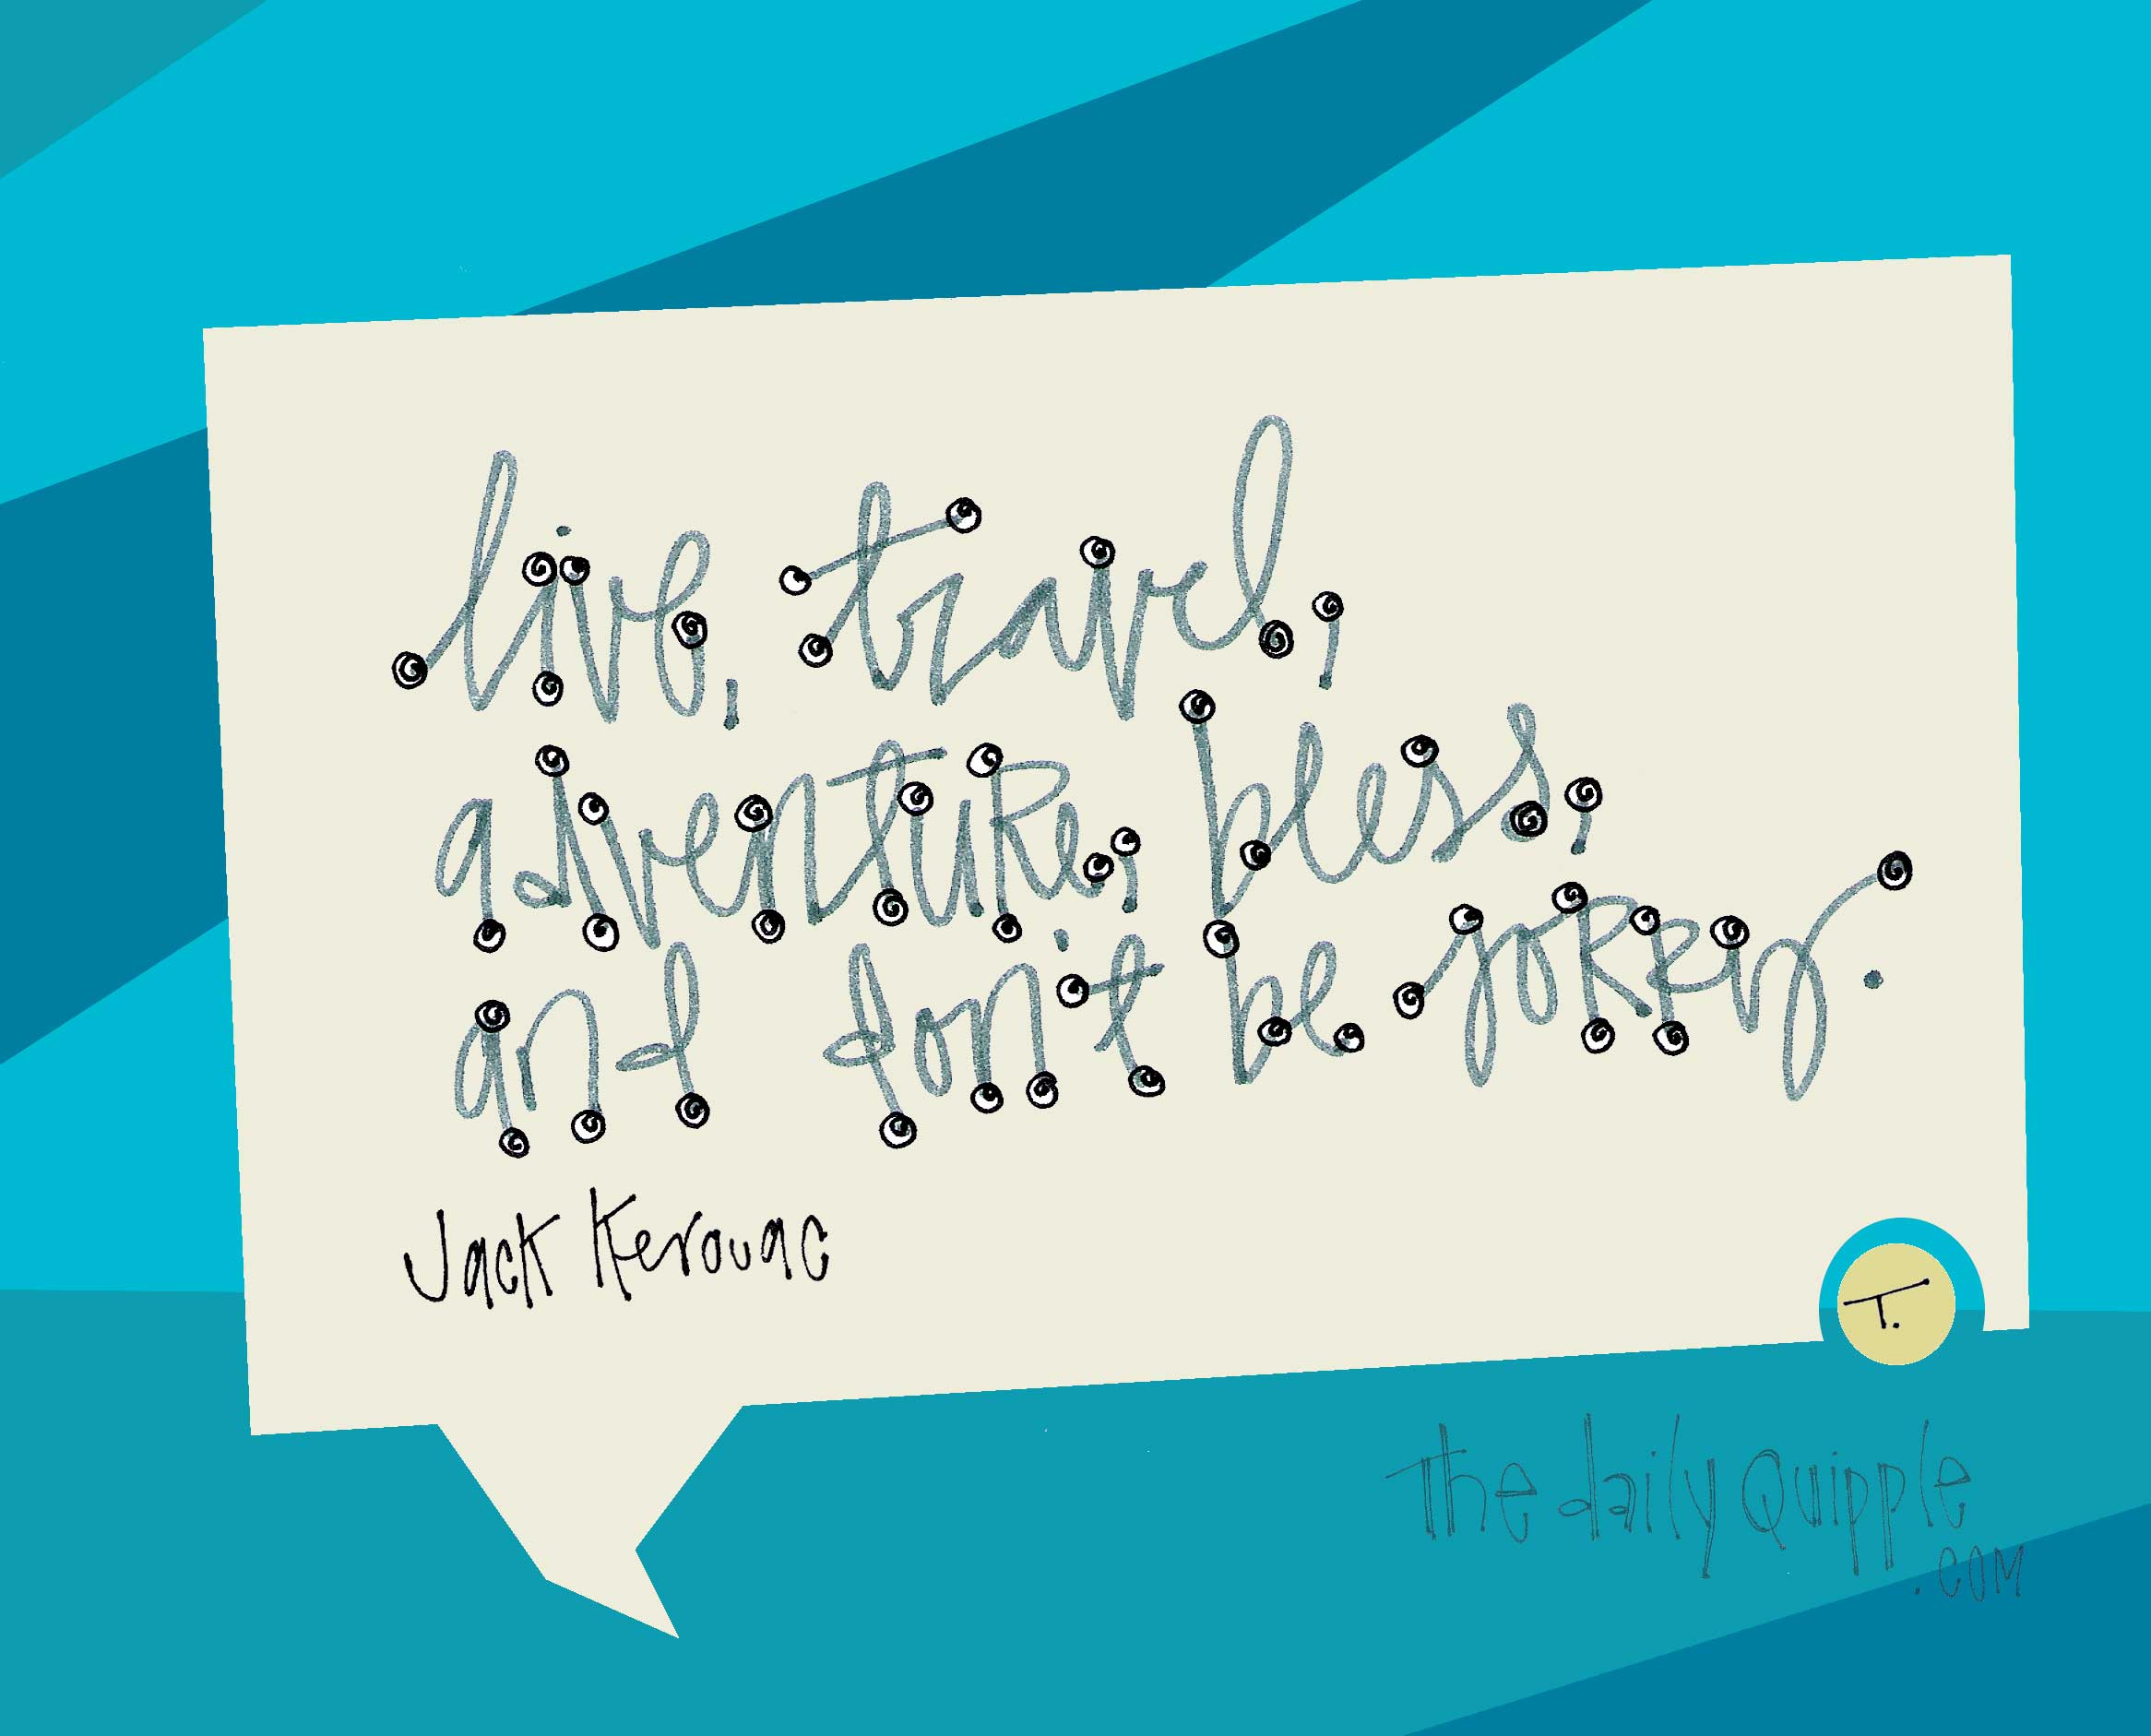 live, travel,
adventure, bless,
and don't be sorry.
Jack Kerouac
T.
The daily Quipple
.com